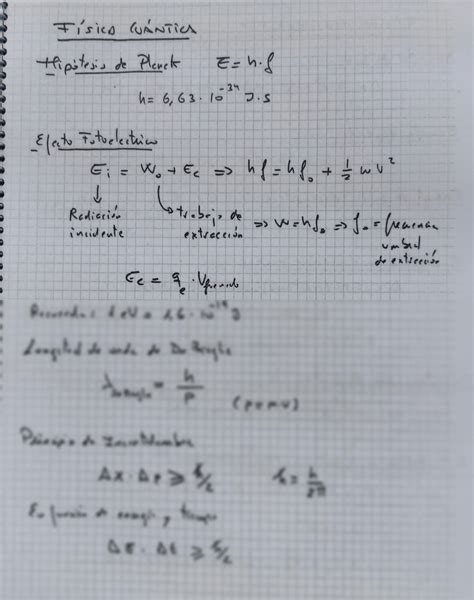 FÍSICA CUÁNTICA
Hipótesis de Planck E = h·f
h = 6,63·10^-34 J·s
Efecto Fotoeléctrico
Ei = Wo + Ec ⇒ hf = hfo + 1/2 m v²
↓ Radiación incidente
↳ trabajo de extracción ⇒ W = hfo ⇒ fo = frecuencia umbral de extracción
Ec = qe · Vfrenado
Recuerda: 1 eV = 1,6·10^-19 J
Longitud de onda de De Broglie
λDe Broglie = h/p (p = m·v)
Principio de Incertidumbre
Δx · Δp ≥ ℏ/2 ℏ = h/2π
En función de energía y tiempo
ΔE · Δt ≥ ℏ/2